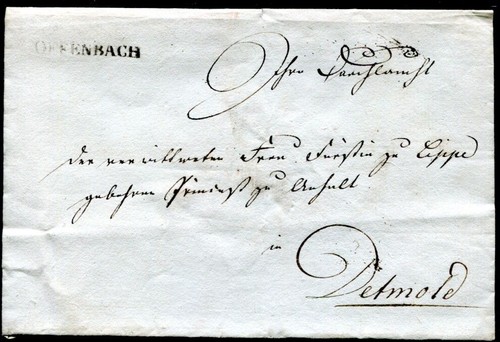 OFFENBACH
Ihro Durchlaucht
der verwittweten Frau Fürstin zu Lippe
gebohrne Prinzeß zu Anhalt
in
Detmold